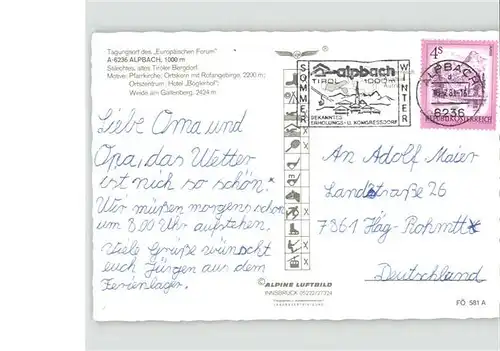 Tagungsort des „Europäischen Forum"
A-6236 ALPBACH, 1000 m
Motive: Pfarrkirche; Ortskern mit Rofangebirge, 2200 m;
Ortszentrum: Hotel „Böglerhof";
Weide am Galtenberg, 2424 m
Liebe Oma und
Opa, das Wetter
ist nich so schön.
Wir müßen morgens schon
um 8.00 Uhr aufstehen.
Viele Grüße wünscht
euch Jürgen aus dem
Ferienlager.
SOMMER
alpbach
TIROL 1000m
BEKANNTES
ERHOLUNGS- U. KONGRESSDORF
WINTER
ALPBACH
6236
4S
REPUBLIK ÖSTERREICH
An Adolf Maier
Landstraße 26
7361 Häg-Rohmtt
Deutschland
© ALPINE LUFTBILD
INNSBRUCK 05222/37324
FÖ 581 A